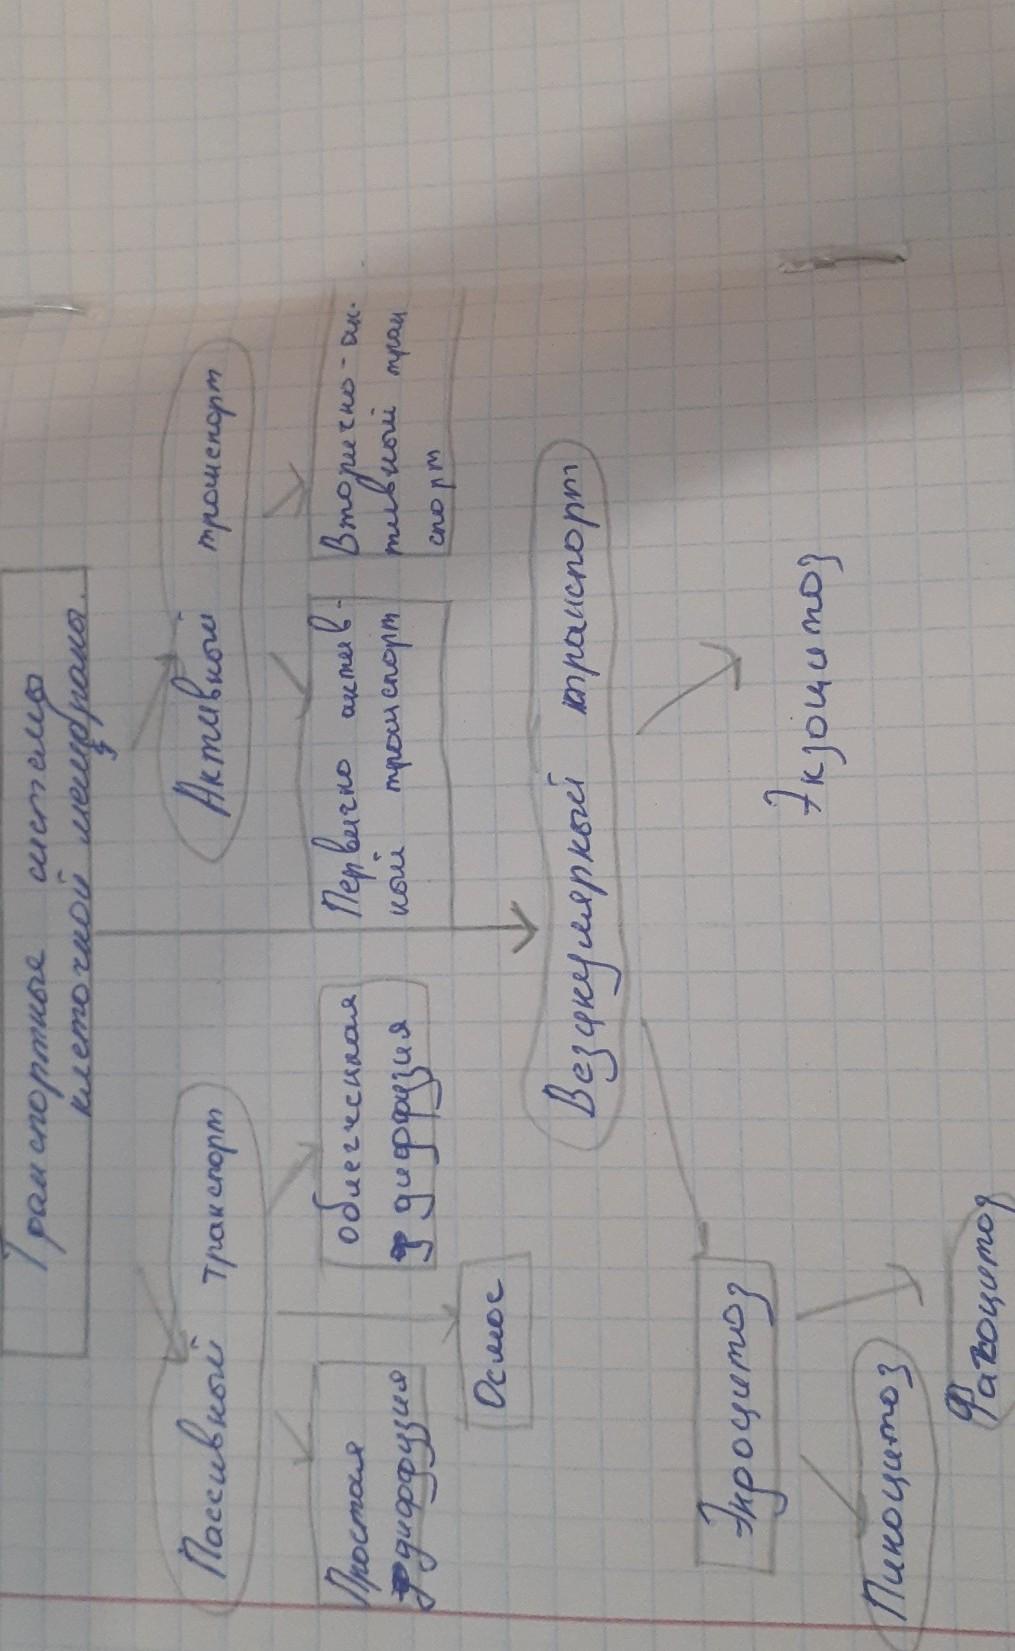 Транспортные системы
клеточной мембраны.
Пассивный транспорт
Активный транспорт
Простая
диффузия
облегченная
диффузия
Осмос
Первично актив-
ный транспорт
Вторично-ак-
тивный тран
спорт
Везикулярный транспорт
Экзоцитоз
Пиноцитоз
Фагоцитоз